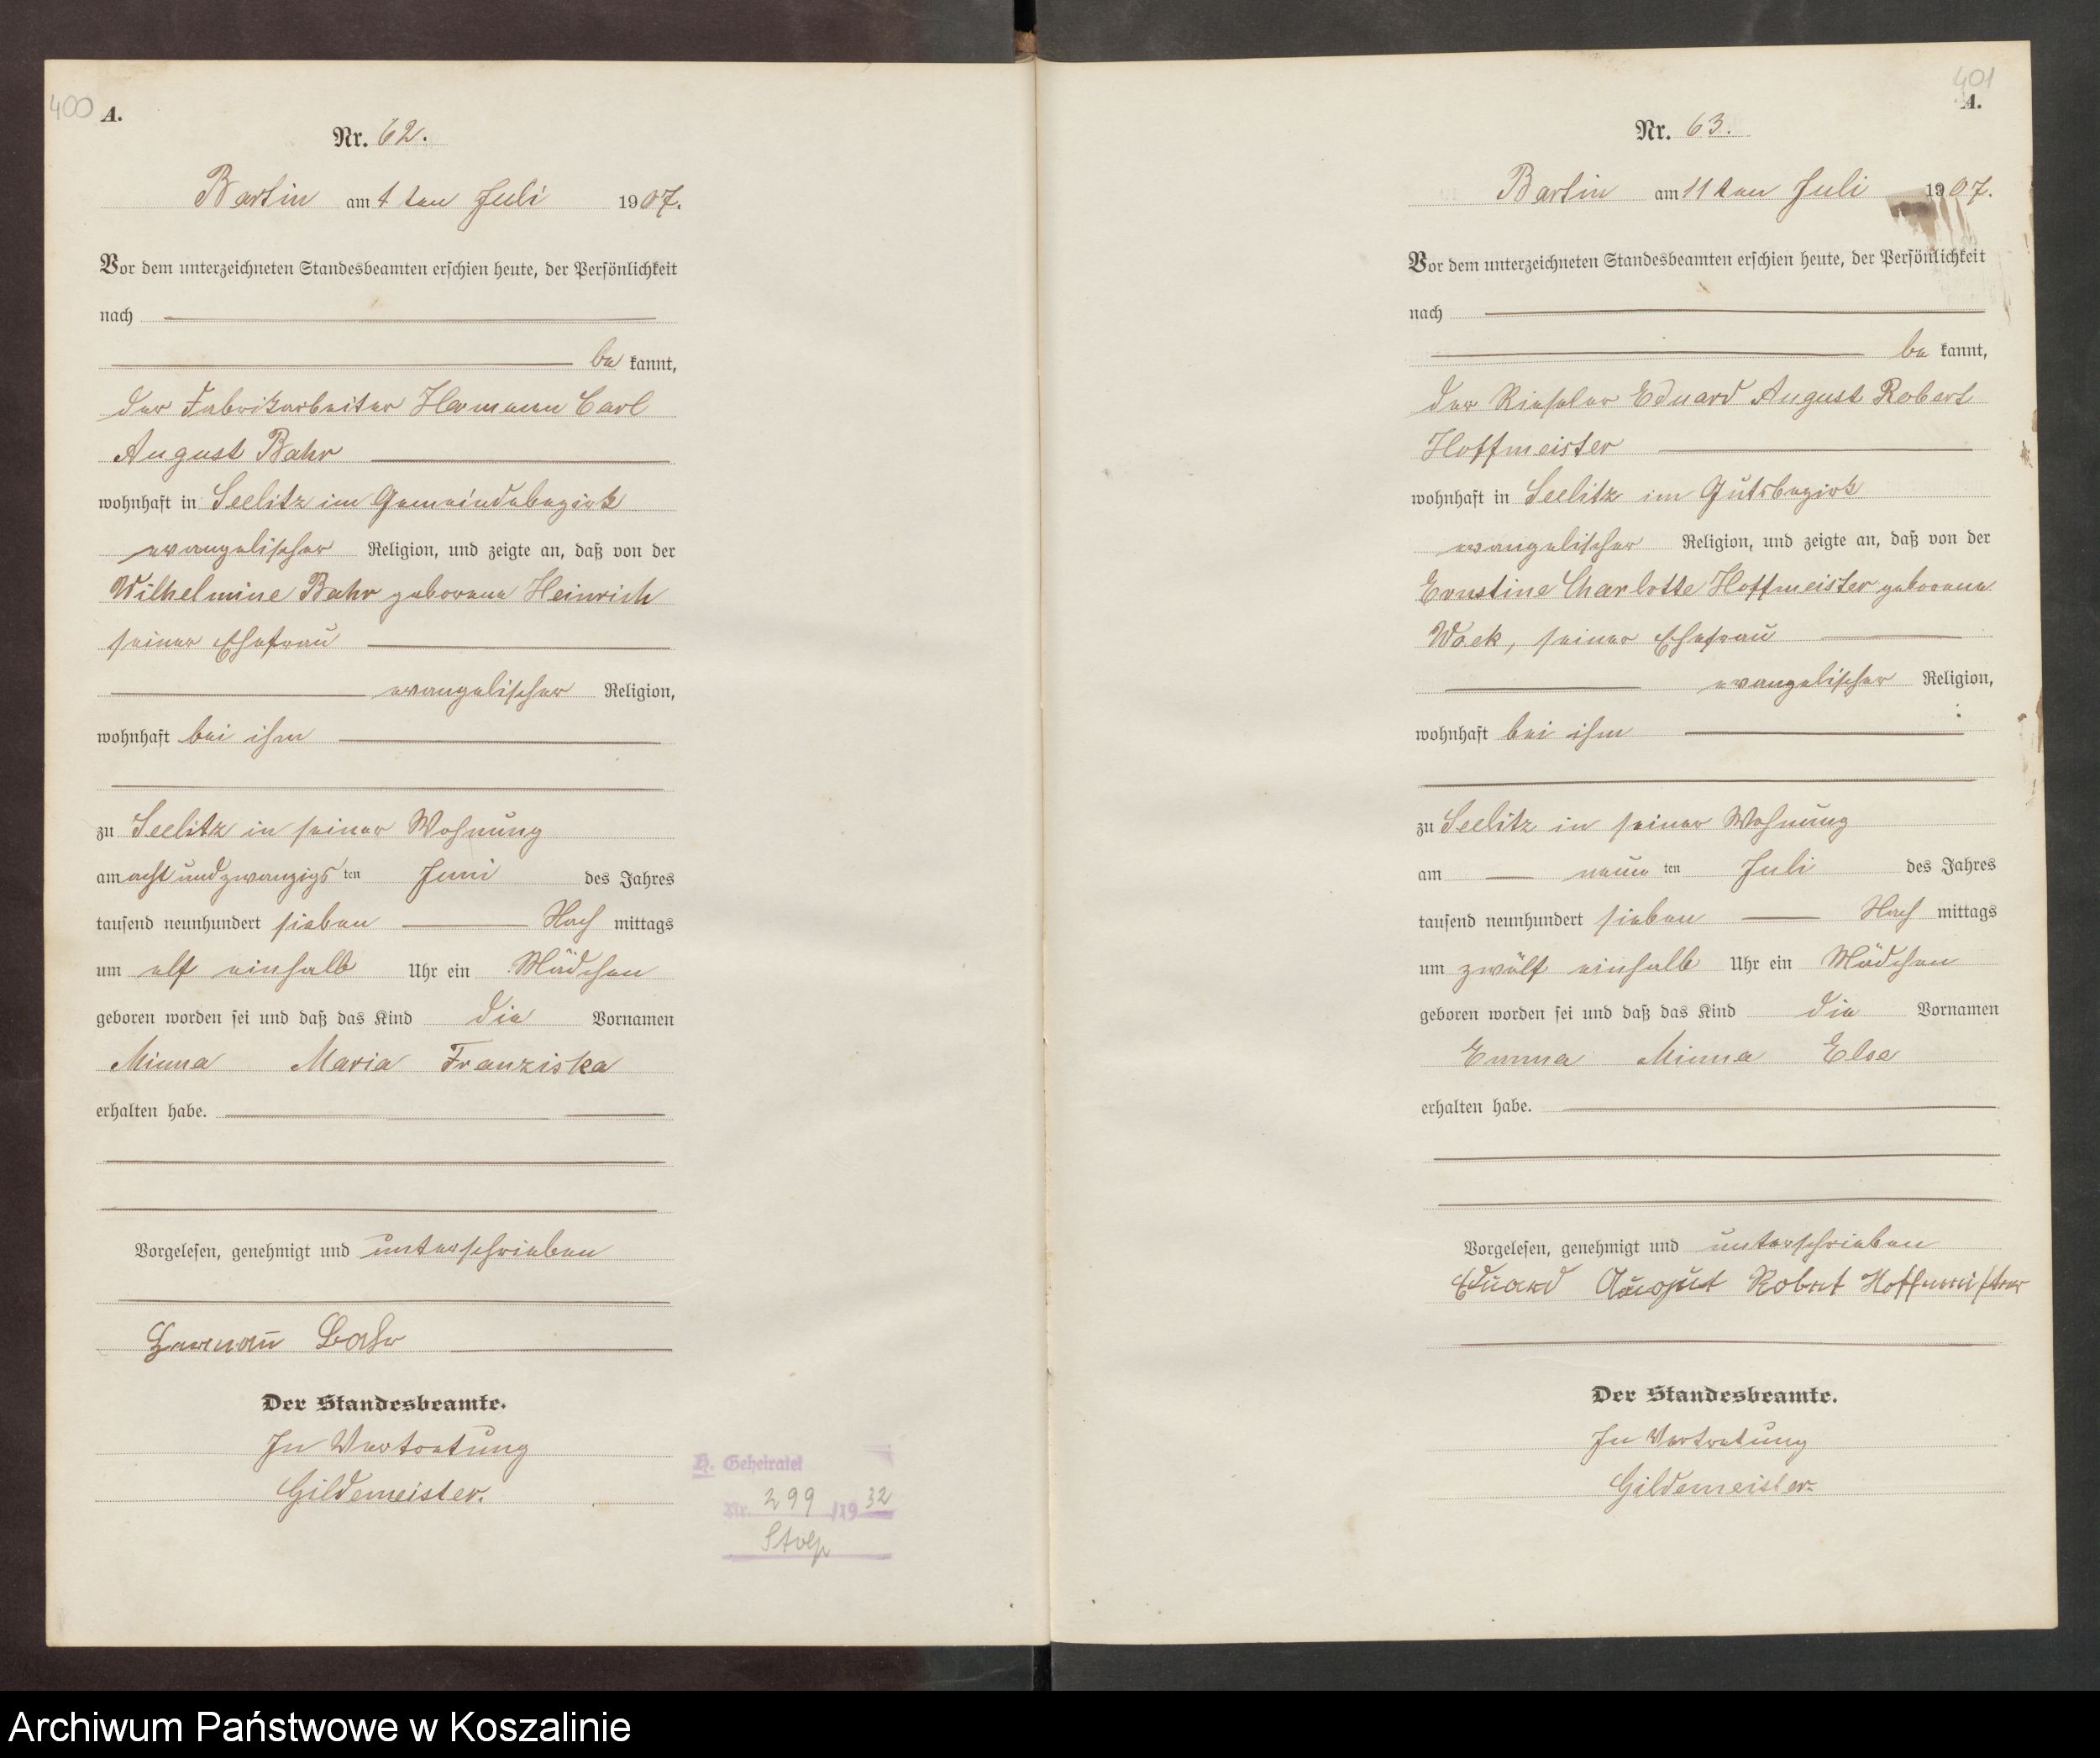 400 A.
Nr. 62.
Bartin am 1 ten Juli 1907.
Vor dem unterzeichneten Standesbeamten erschien heute, der Persönlichkeit
nach
be kannt,
der Fabrikarbeiter Hermann Carl
August Bahr
wohnhaft in Seelitz im Gemeindebezirk
evangelischer Religion, und zeigte an, daß von der
Wilhelmine Bahr geborene Heinrich
seiner Ehefrau
evangelischer Religion,
wohnhaft bei ihm
zu Seelitz in seiner Wohnung
am acht und zwanzigs ten Juni des Jahres
tausend neunhundert sieben Nach mittags
um elf einhalb Uhr ein Mädchen
geboren worden sei und daß das Kind die Vornamen
Minna Maria Franziska
erhalten habe.
Vorgelesen, genehmigt und unterschrieben
Herman̄ Bahr
Der Standesbeamte.
In Vertretung
Gildemeister.
H. Geheiratet
Nr. 299 /19 32
Stolp
401
A.
Nr. 63.
Bartin am 11 ten Juli 1907.
Vor dem unterzeichneten Standesbeamten erschien heute, der Persönlichkeit
nach
be kannt,
der Rieseler Eduard August Robert
Hoffmeister
wohnhaft in Seelitz im Gutsbezirk
evangelischer Religion, und zeigte an, daß von der
Ernstine Charlotte Hoffmeister geborene
Woek, seiner Ehefrau
evangelischer Religion,
wohnhaft bei ihm
zu Seelitz in seiner Wohnung
am neun ten Juli des Jahres
tausend neunhundert sieben Nach mittags
um zwölf einhalb Uhr ein Mädchen
geboren worden sei und daß das Kind die Vornamen
Emma Minna Else
erhalten habe.
Vorgelesen, genehmigt und unterschrieben
Eduard August Robert Hoffmeister
Der Standesbeamte.
In Vertretung
Gildemeister.
Archiwum Państwowe w Koszalinie